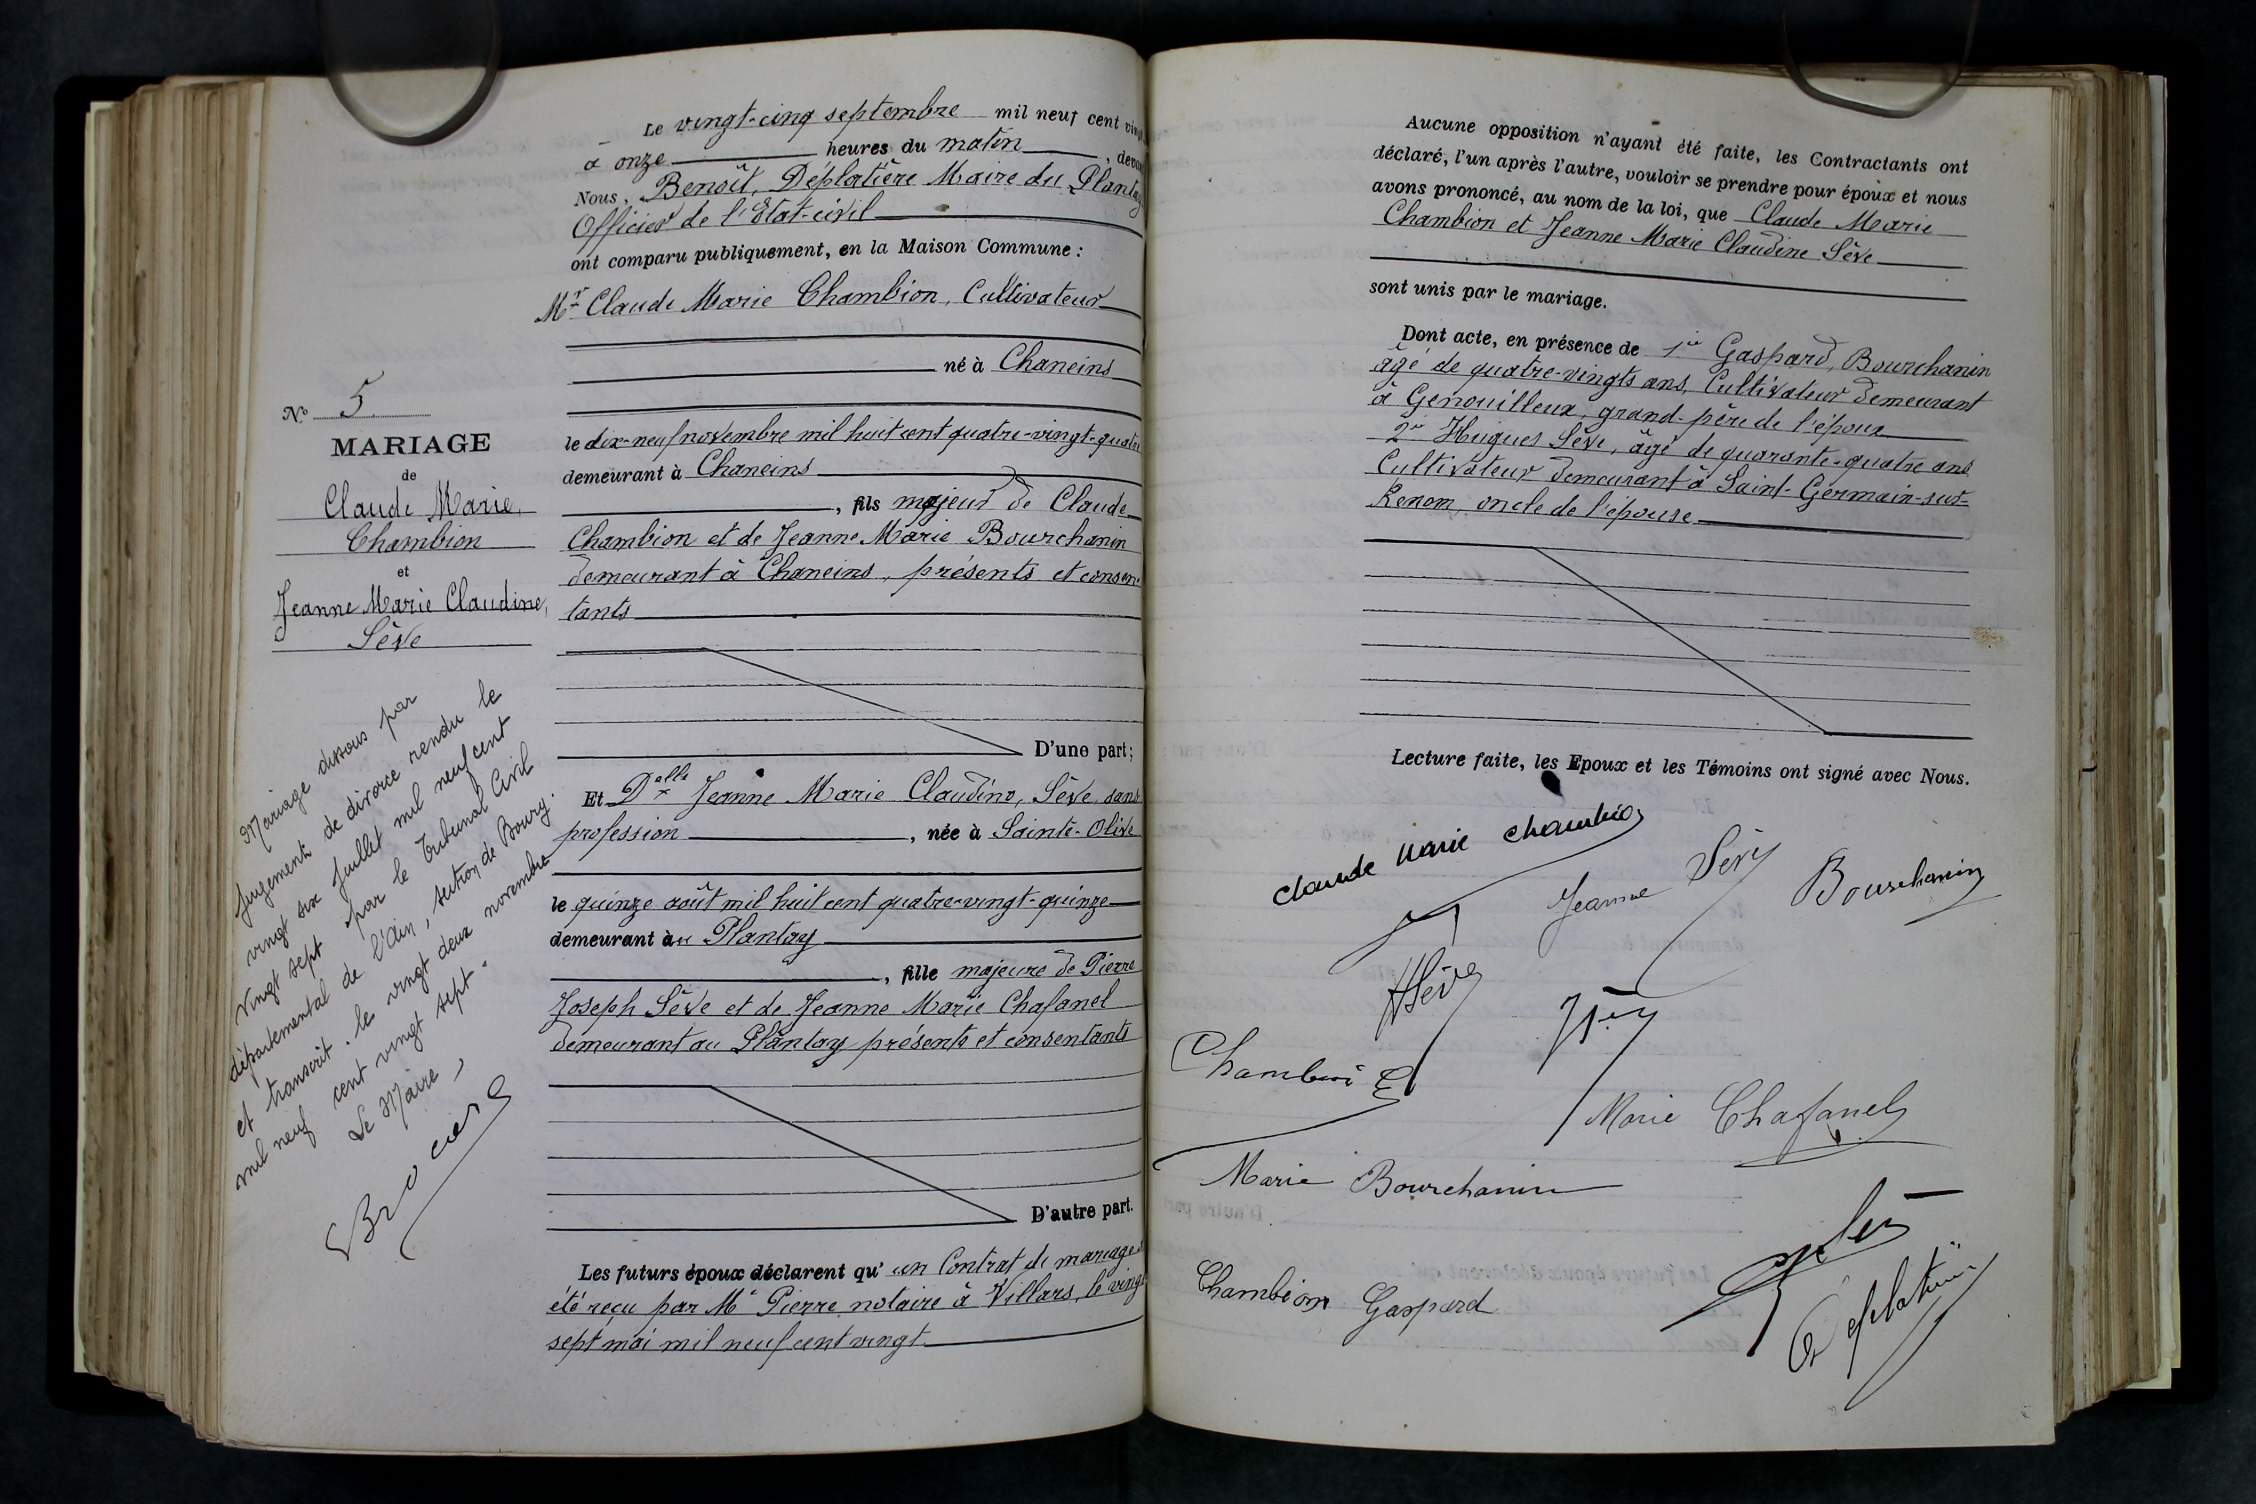 Le vingt-cinq septembre mil neuf cent vingt
à onze heures du matin, devant
Nous, Benoît, Déplatière Maire du Plantay
Officier de l'Etat-civil
ont comparu publiquement, en la Maison Commune :
Mr Claude Marie Chambion, Cultivateur
né à Chaneins
le dix-neuf novembre mil huit cent quatre-vingt-quatre
demeurant à Chaneins
, fils majeur de Claude
Chambion et de Jeanne Marie Bourchanin
demeurant à Chaneins, présents et consen-
tants
D'une part ;
Et Delle Jeanne Marie Claudine, Sève sans
profession, née à Sainte-Olive
le quinze août mil huit cent quatre-vingt-quinze
demeurant au Plantay
, fille majeure de Pierre
Joseph Sève et de Jeanne Marie Chafanel
demeurant au Plantay présents et consentants
D'autre part.
Les futurs époux déclarent qu' un Contrat de mariage a
été reçu par Me Pierre notaire à Villars, le vingt
sept mai mil neuf cent vingt
No 5
MARIAGE
de
Claude Marie,
Chambion
et
Jeanne Marie Claudine,
Sève
Mariage dissous par
jugement de divorce rendu le
vingt six juillet mil neuf cent
vingt sept par le Tribunal Civil
départemental de l'Ain, section de Bourg.
et transcrit le vingt deux novembre
mil neuf cent vingt sept.
Le Maire,
Aucune opposition n'ayant été faite, les Contractants ont
déclaré, l'un après l'autre, vouloir se prendre pour époux et nous
avons prononcé, au nom de la loi, que Claude Marie
Chambion et Jeanne Marie Claudine Sève
sont unis par le mariage.
Dont acte, en présence de 1er Gaspard, Bourchanin
âgé de quatre-vingts ans, Cultivateur demeurant
à Genouilleux, grand-père de l'époux
2e Hugues Sève, âgé de quarante-quatre ans
Cultivateur demeurant à Saint-Germain-sur-
Renom, oncle de l'épouse
Lecture faite, les Epoux et les Témoins ont signé avec Nous.
Claude Marie Chambion
Jeanne Sève
Bourchanin
HSève
Marie Chafanel
Marie Bourchanin
Chambion Gaspard
Déplatière